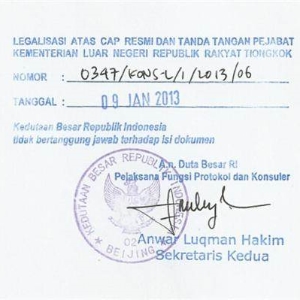 LEGALISASI ATAS CAP RESMI DAN TANDA TANGAN PEJABAT
KEMENTERIAN LUAR NEGERI REPUBLIK RAKYAT TIONGKOK
NOMOR : 0347/KONS-L/1/2013/06
TANGGAL : 09 JAN 2013
Kedutaan Besar Republik Indonesia
tidak bertanggung jawab terhadap isi dokumen
A.n. Duta Besar RI
Pelaksana Fungsi Protokol dan Konsuler
KEDUTAAN BESAR REPUBLIK INDONESIA
02
BEIJING
Anwar Luqman Hakim
Sekretaris Kedua